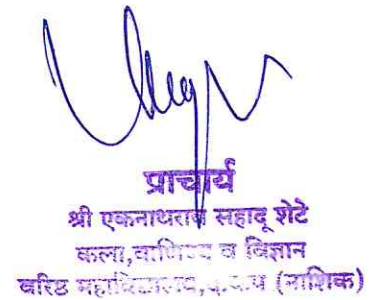 प्राचार्य
श्री एकनाथराव सहादू शेटे
कला,वाणिज्य व विज्ञान
वरिष्ठ महाविद्यालय, (नाशिक)